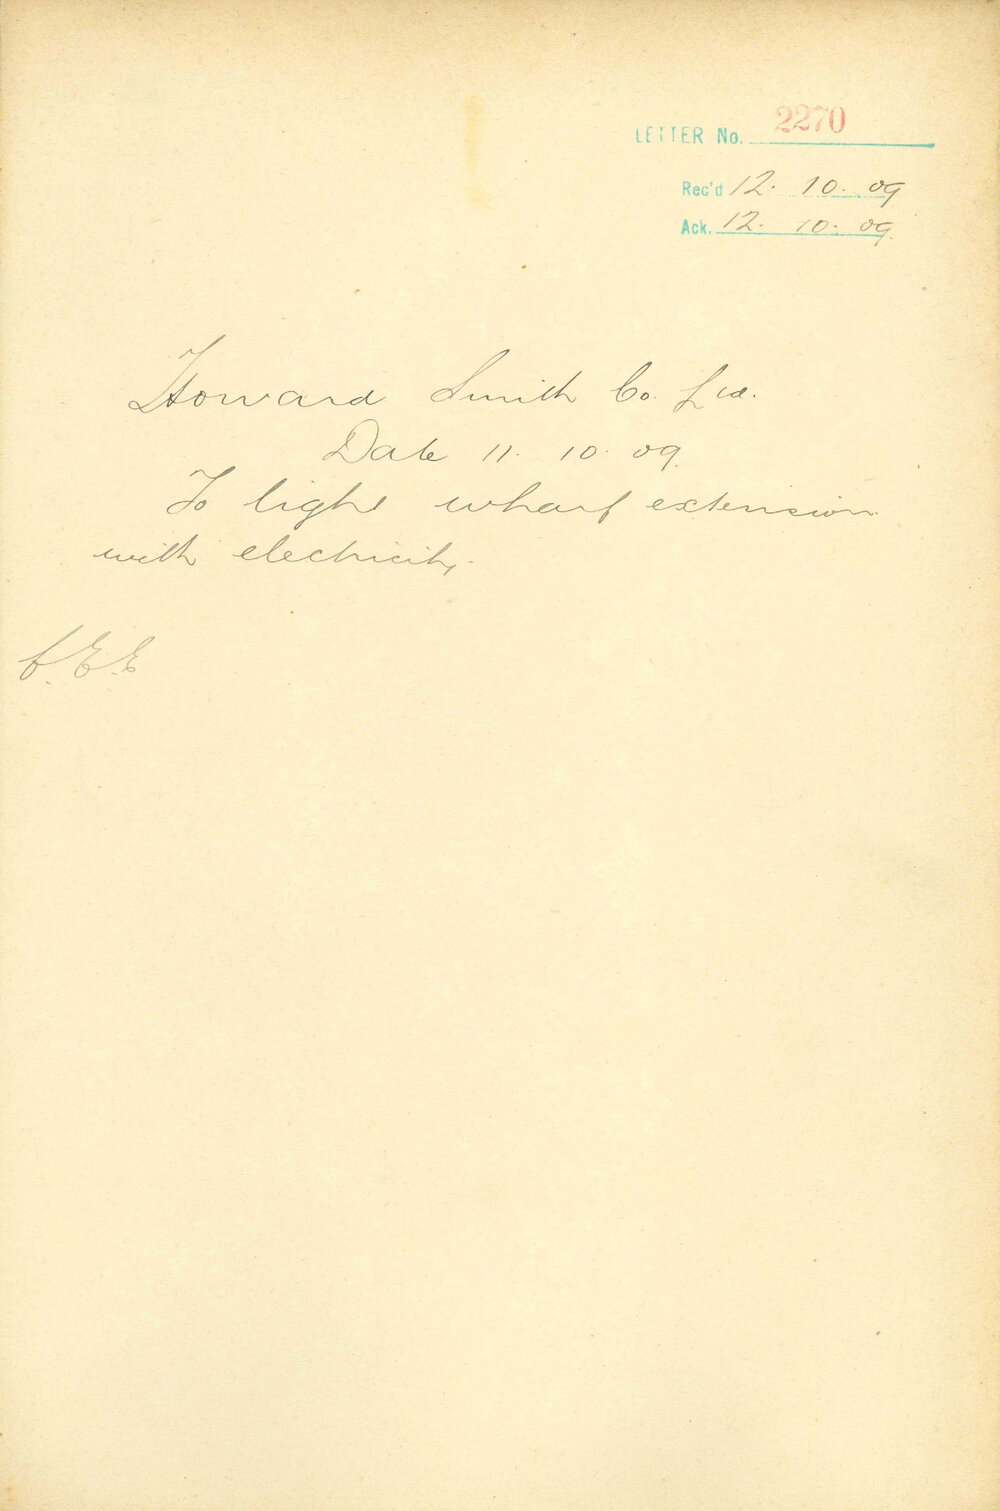 LETTER No. 2270
Rec'd 12. 10. 09
Ack. 12. 10. 09.
Howard Smith Co. Ltd.
Date 11. 10. 09.
To light wharf extension
with electricity.
C.E.E